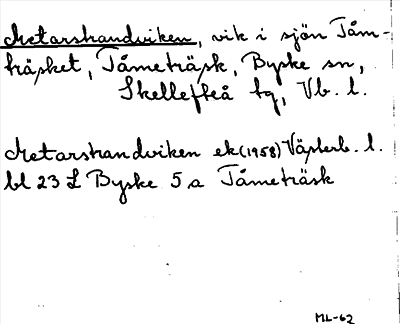 Metarstrandviken, vik i sjön Tåm-
träsket, Tåmeträsk, Byske sn,
Skellefteå tg, Vb. l.
Metarstrandviken ek(1958) Västerb. l.
bl 23 L Byske 5 a Tåmeträsk
ML-62